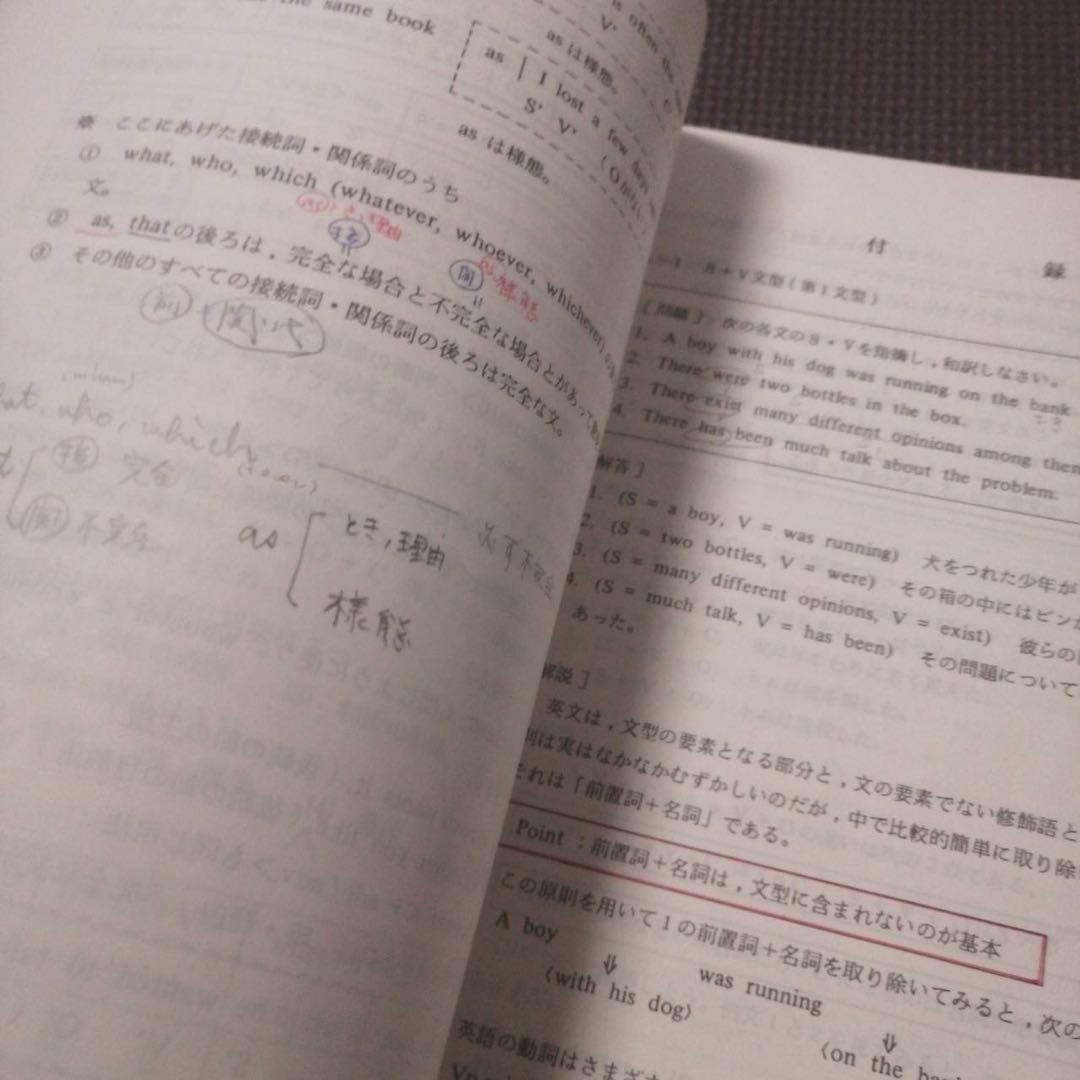 the same book
as | I lost a few
S' V'
as は様態。
often the
V'
as は様態。
※ ここにあげた接続詞・関係詞のうち
① what, who, which (whatever, whoever, whichever)
文。
as とき,理由
接
関
as 様態
② as, thatの後ろは，完全な場合と不完全な場合とがあって
③ その他のすべての接続詞・関係詞の後ろは完全な文。
前 + 関・代
who, which
接 完全
関 不完全
必ず不完全
as
とき,理由
様態
付 録
S+V文型(第1文型)
[問題] 次の各文のS+Vを指摘し，和訳しなさい。
1. A boy with his dog was running on the bank
2. There were two bottles in the box.
3. There exist many different opinions among them
4. There has been much talk about the problem.
解答]
1. (S = a boy, V = was running) 犬をつれた少年が
2. (S = two bottles, V = were) その箱の中にはビンが
3. (S = many different opinions, V = exist) 彼らの
4. (S = much talk, V = has been) その問題について
あった。
解説]
英文は，文型の要素となる部分と，文の要素でない修飾語と
別は実はなかなかむずかしいのだが，中で比較的簡単に取り除
それは「前置詞+名詞」である。
Point：前置詞+名詞は，文型に含まれないのが基本
この原則を用いて1の前置詞+名詞を取り除いてみると，次の
A boy
⇓
was running
(with his dog)
⇓
(on the
英語の動詞はさまざま